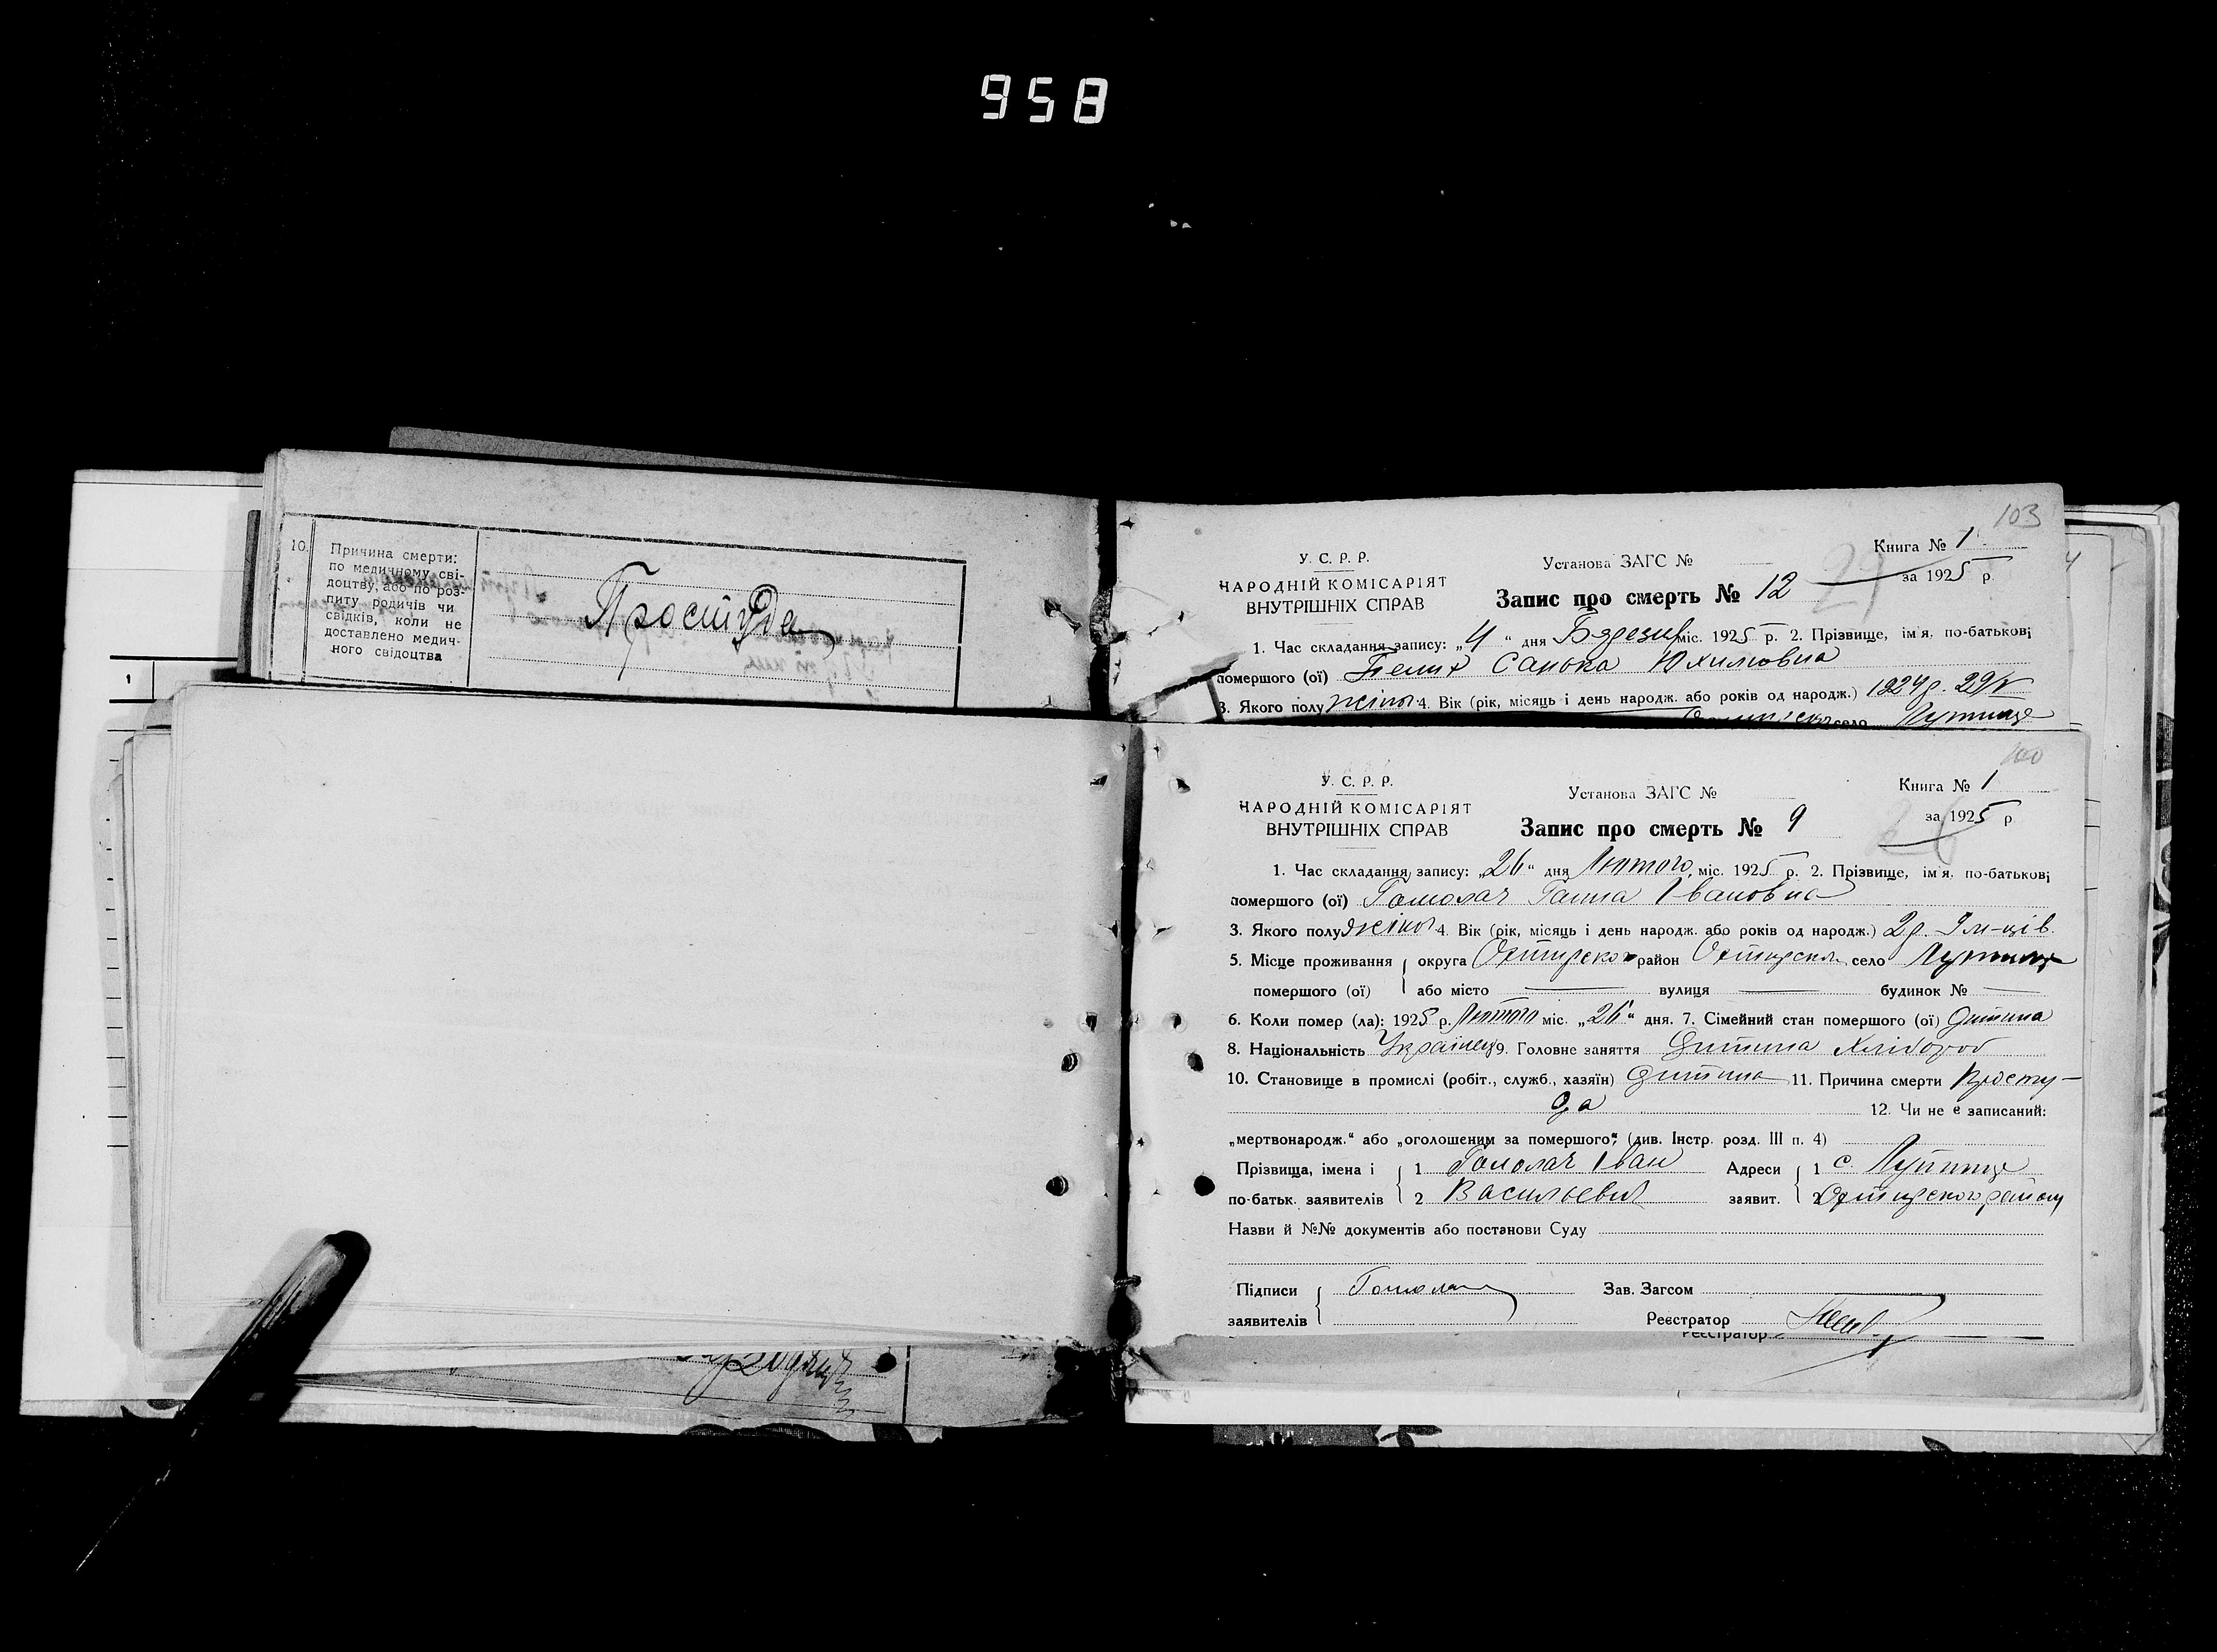 958
10. Причина смерти:
по медичному сві-
доцтву, або по роз-
питу родичів чи
свідків, коли не
доставлено медич-
ного свідоцтва
Простуда
1
103
У. С. Р. Р.
НАРОДНІЙ КОМІСАРІЯТ
ВНУТРІШНІХ СПРАВ
Установа ЗАГС №
Запис про смерть № 12
Книга № 1
за 1925 р.
1. Час складання запису: „4“ дня міс. 1925 р. 2. Прізвище, ім'я, по-батькові
помершого (ої) Санька Юхимовна
3. Якого полу жіноч 4. Вік (рік, місяць і день народж. або років од народж.) 1924 р. 29/V
село Лутище
100
У. С. Р. Р.
НАРОДНІЙ КОМІСАРІЯТ
ВНУТРІШНІХ СПРАВ
Установа ЗАГС №
Запис про смерть № 9
Книга № 1
за 1925 р.
1. Час складання запису: „26“ дня Лютого міс. 1925 р. 2. Прізвище, ім'я, по-батькові
помершого (ої) Гомолач Ганна Івановна
3. Якого полу жіноч 4. Вік (рік, місяць і день народж. або років од народж.) 2 р. 9 м-ців.
5. Місце проживання округа Охтирсько район Охтирськ село Лутище
помершого (ої) або місто вулиця будинок №
6. Коли помер (ла): 1925 р. Лютого міс. „26“ дня. 7. Сімейний стан помершого (ої) дитина
8. Національність Українец 9. Головне заняття Дитина Хлібороб
10. Становище в промислі (робіт., служб., хазяїн) дитина 11. Причина смерти Просту-
да 12. Чи не є записаний:
„мертвонародж.“ або „оголошеним за помершого“; (див. Інстр. розд. III п. 4)
Прізвища, імена і 1 Гомолач Іван Адреси 1 с. Лутище
по-батьк. заявителів 2 Васильевич заявит. 2 Охтирського району
Назви й №№ документів або постанови Суду
Підписи Гомолач Зав. Загсом
заявителів Реєстратор
Реєстратор